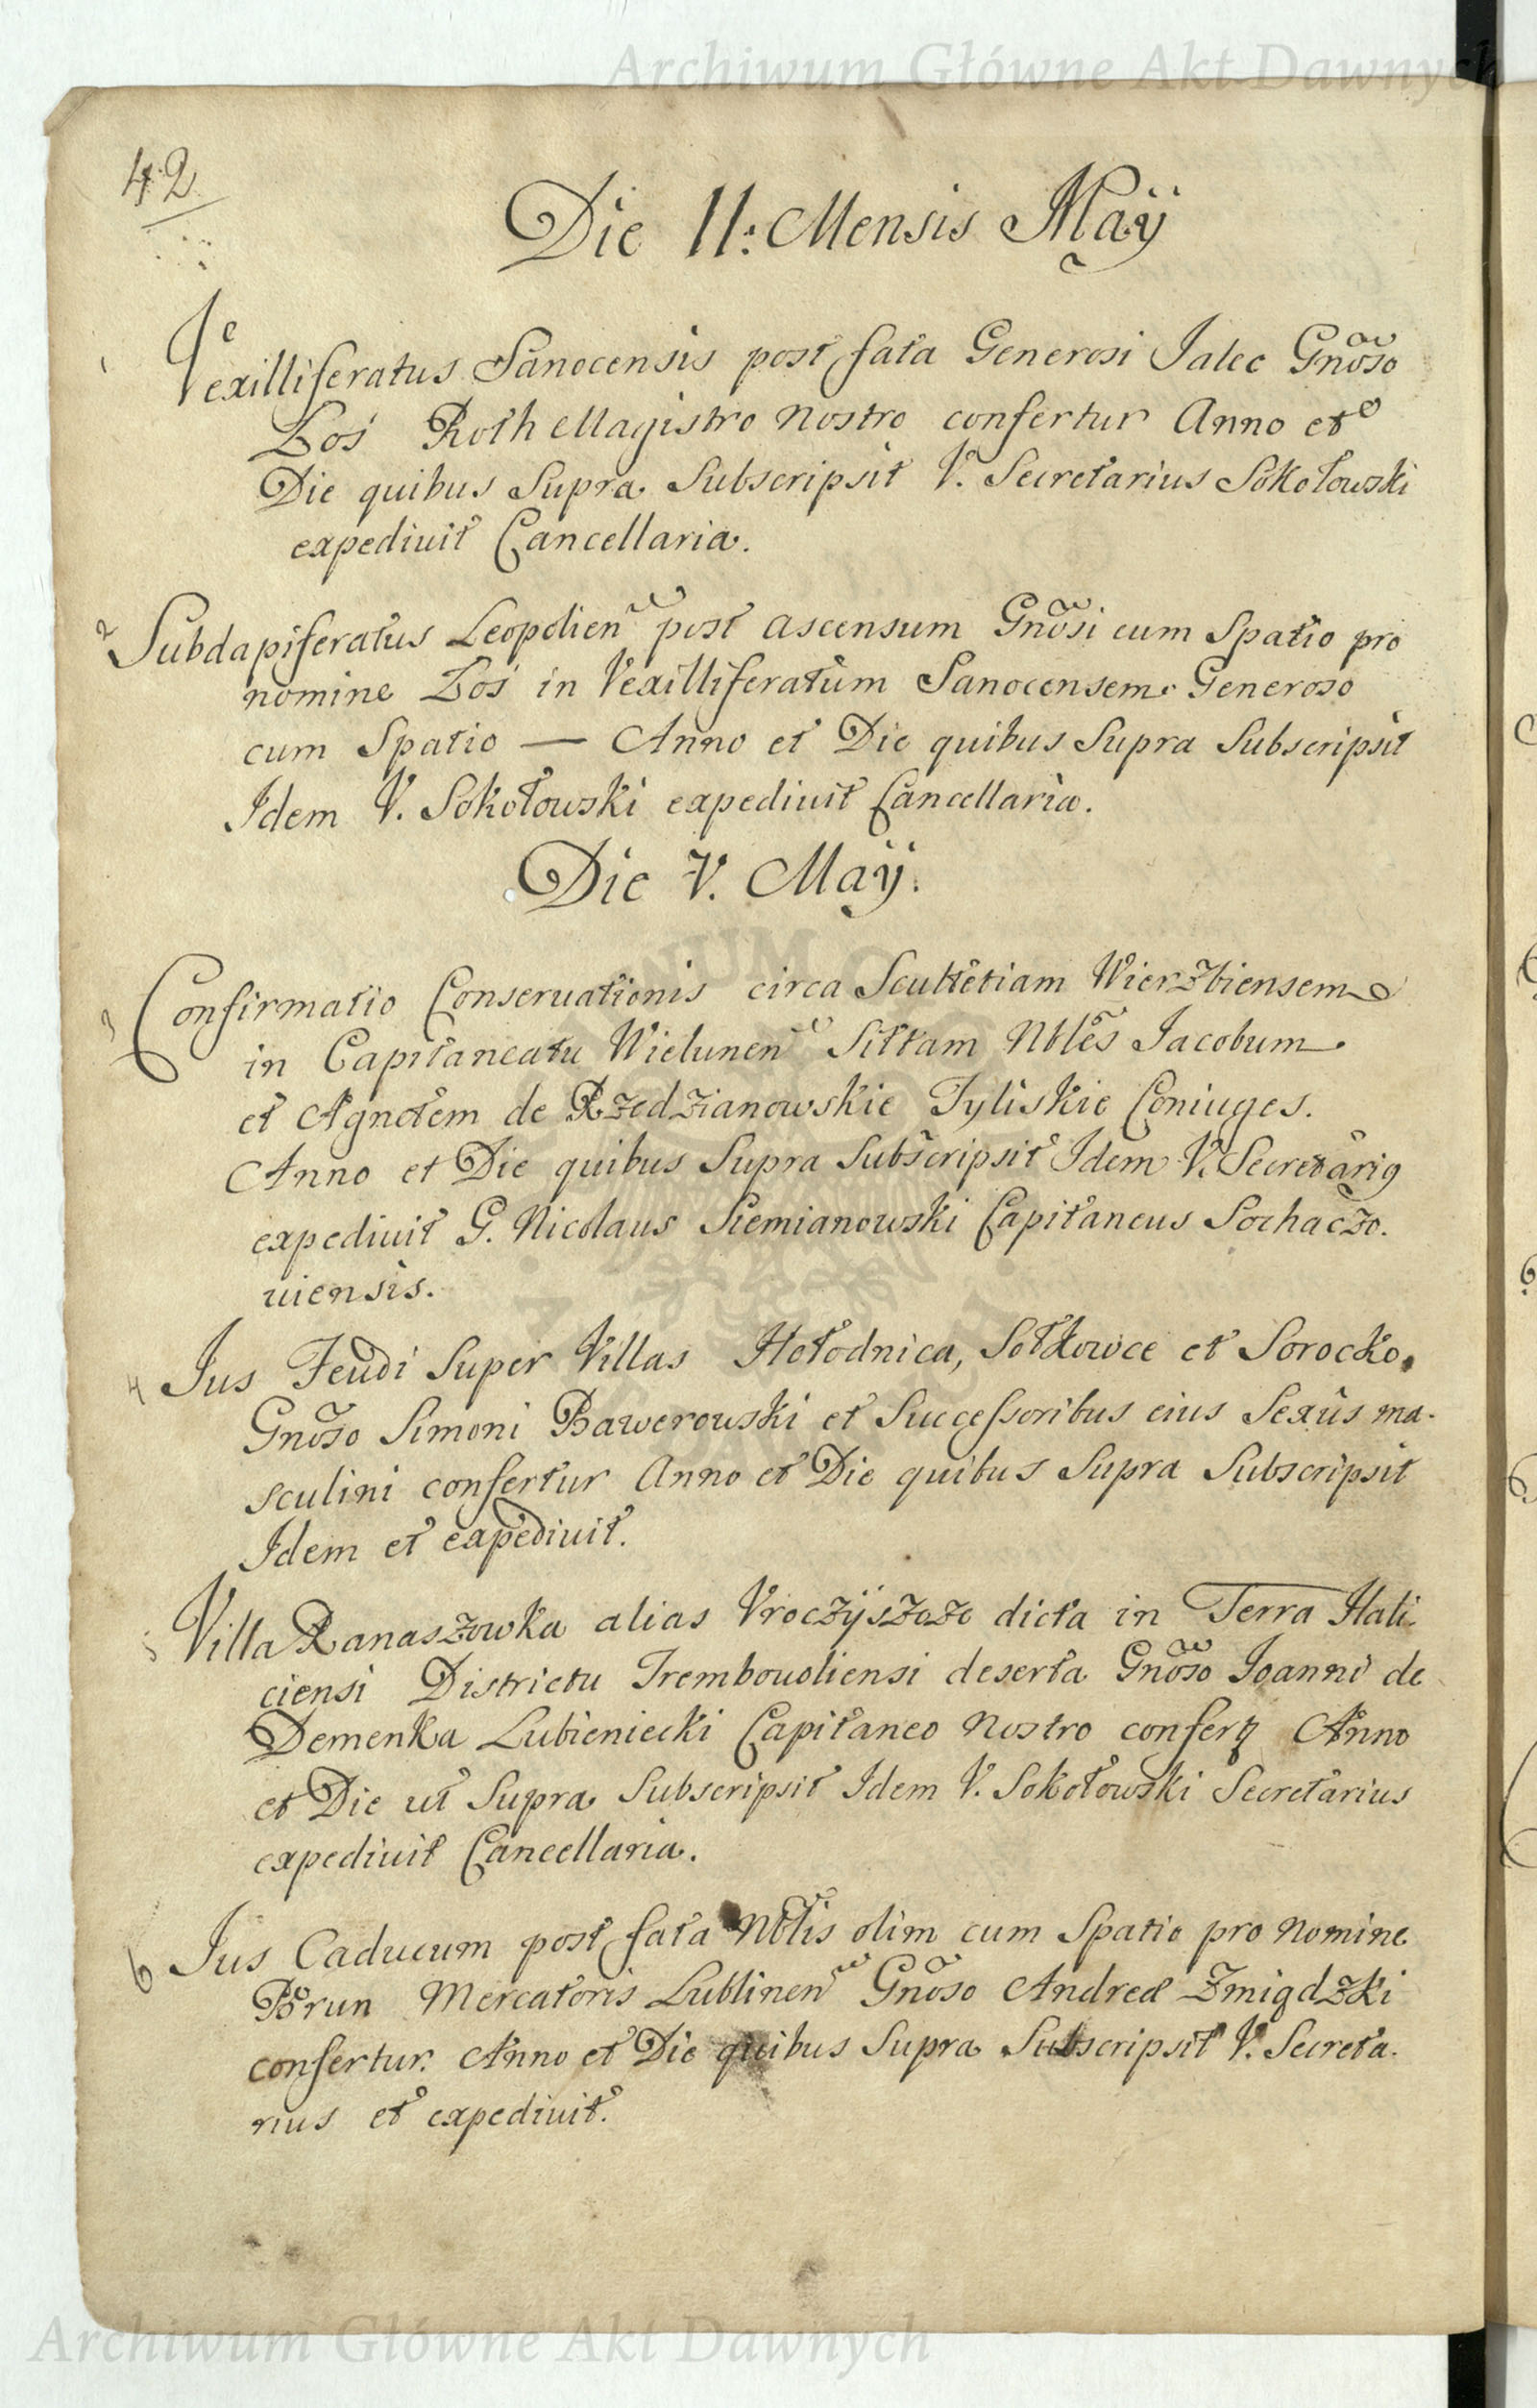 Archiwum Główne Akt Dawnych
42
Die 11: Mensis Maÿ
1 Vexilliferatus Sanocensis post fata Generosi Jalec Gnõso
Łoś Rothmagistro Nostro confertur Anno et
Die quibus Supra Subscripsit V. Secretarius Sokołowski
expediuit Cancellaria.
2 Subdapiferatus Leopolien post ascensum Gnõsi cum Spatio pro
nomine Łoś in Vexilliferatum Sanocensem Generoso
cum Spatio — Anno et Die quibus Supra Subscripsit
Idem V. Sokołowski expediuit Cancellaria.
Die V. Maÿ.
3 Confirmatio Conseruationis circa Scultetiam Wierzbiensem
in Capitaneatu Wielunen Sittam Nbles Jacobum
et Agnetem de Rzedzianowskie Tyliskie Coniuges.
Anno et Die quibus Supra Subscripsit Idem V. Secretari9
expediuit G. Nicolaus Siemianowski Capitaneus Sochaczo.
uiensis.
4 Jus Feudi Super Villas Hołodnica, Sołkowce et Sorocko.
Gnõso Simoni Bawerowski et Successoribus eius Sexus ma-
sculini confertur Anno et Die quibus Supra Subscripsit
Idem et expediuit.
5 Villa Ranaszowka alias Vroczÿszcze dicta in Terra Hali-
ciensi Districtu Trembouoliensi deserta Gnõso Joanni de
Demenka Lubieniecki Capitaneo Nostro confert Anno
et Die ut Supra Subscripsit Idem V. Sokołowski Secretarius
expediuit Cancellaria.
6 Jus Caducum post fata Nblis olim cum Spatio pro Nomine
Brun Mercatoris Lublinen Gnõso Andreæ Zmigdzki
confertur. Anno et Die quibus Supra Subscripsit V. Secreta-
rius et expediuit.
Archiwum Główne Akt Dawnych